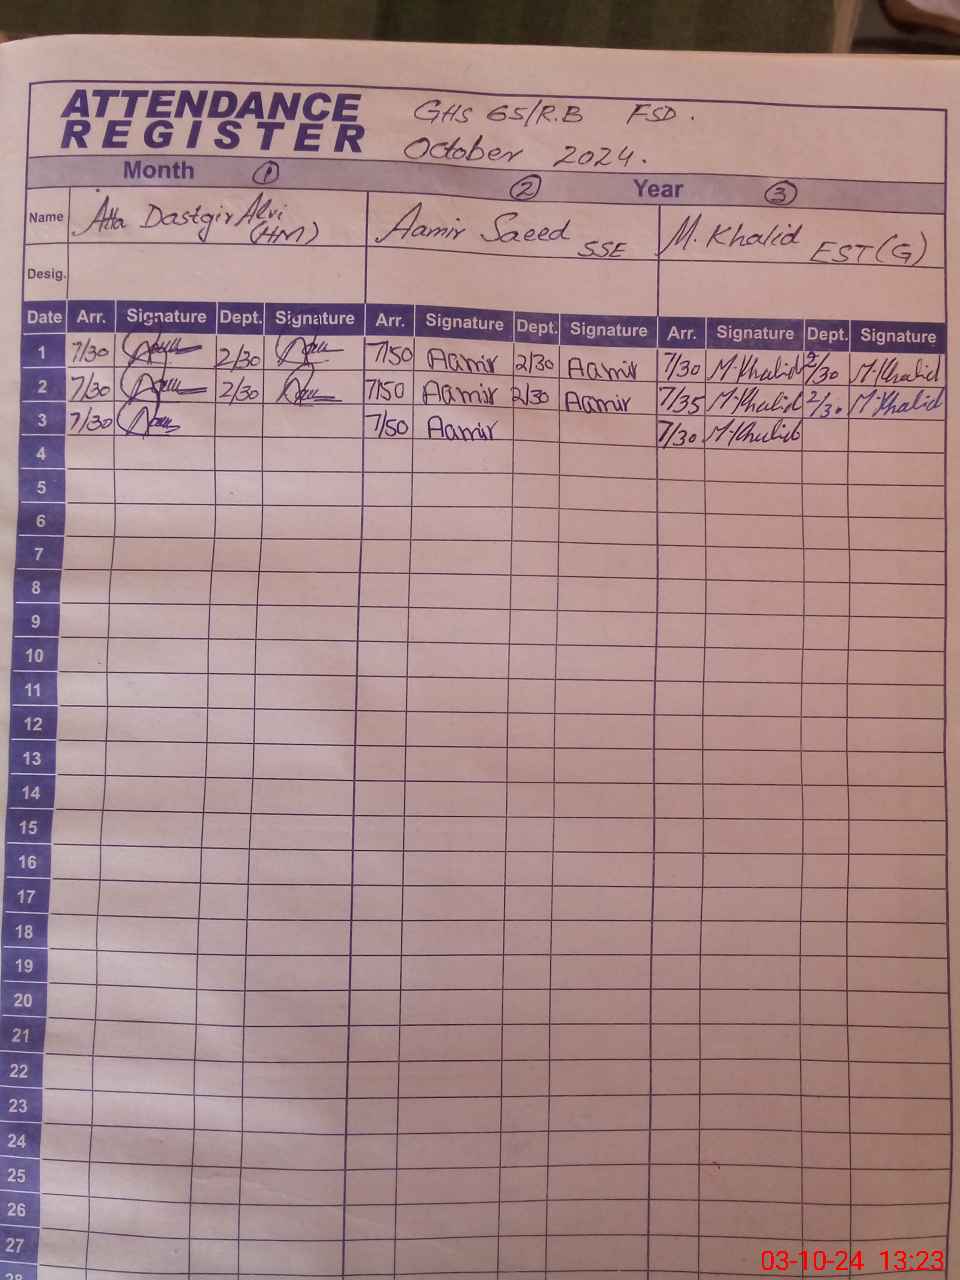 ATTENDANCE
REGISTER
GHS 65/R.B FSD.
October 2024.
Month 1 2 Year 3
Name Atta Dastgir Alvi (HM) Aamir Saeed SSE M. Khalid EST(G)
Desig.
Date Arr. Signature Dept. Signature Arr. Signature Dept. Signature Arr. Signature Dept. Signature
1 7/30 2/30 7/50 Aamir 2/30 Aamir 7/30 M.Khalid 2/30 M.Khalid
2 7/30 2/30 7/50 Aamir 2/30 Aamir 7/35 M.Khalid 2/30 M.Khalid
3 7/30 7/50 Aamir 7/30 M.Khalid
4
5
6
7
8
9
10
11
12
13
14
15
16
17
18
19
20
21
22
23
24
25
26
27
28
03-10-24 13:23